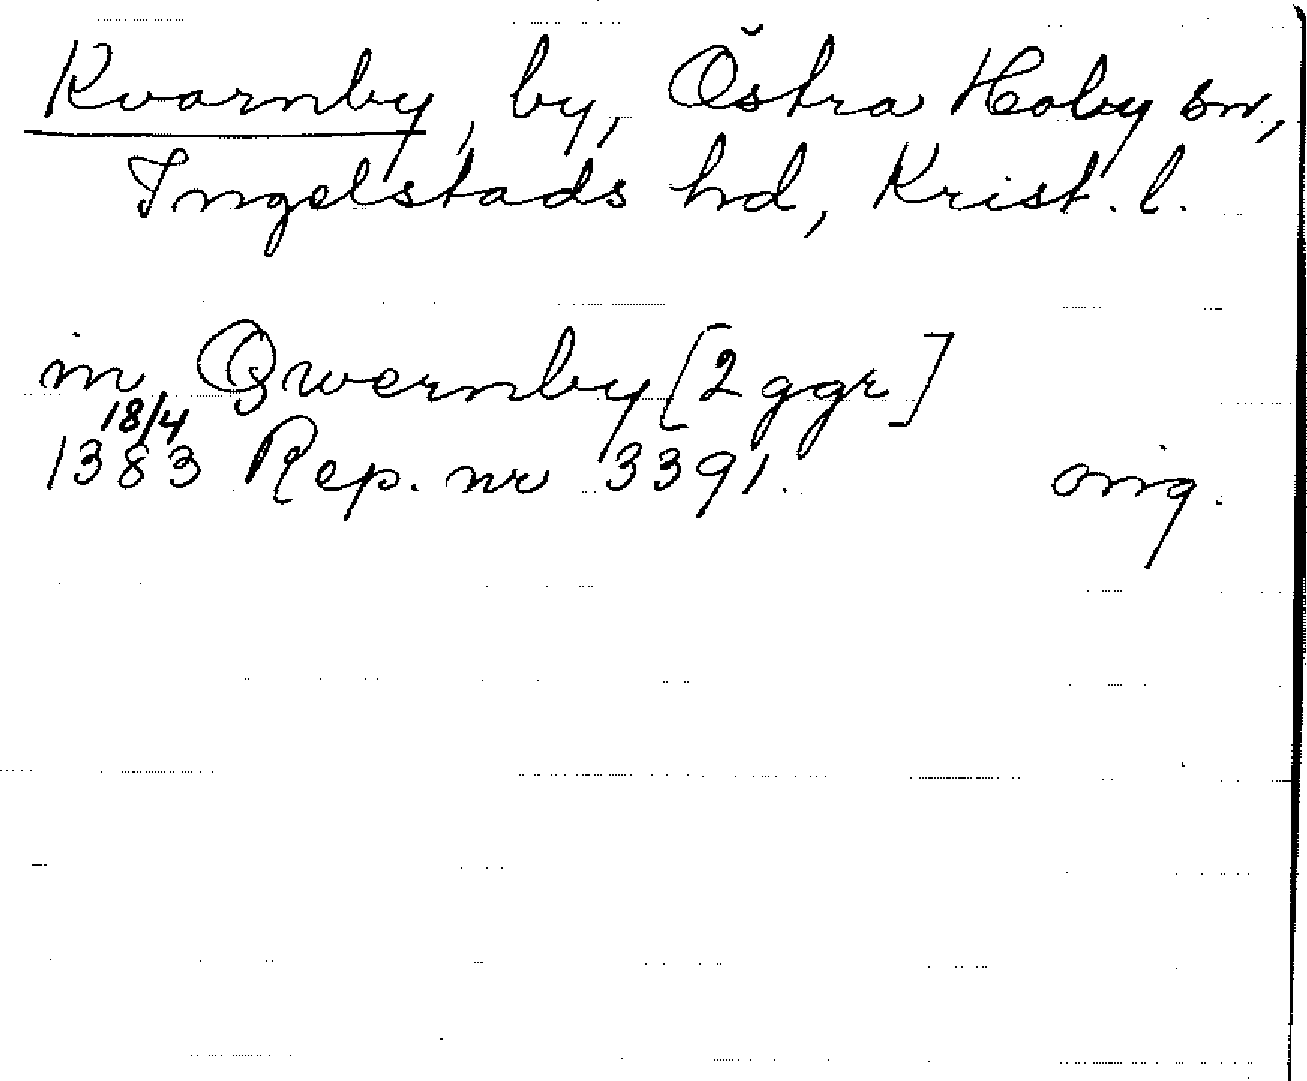 Kvarnby, by, Östra Hoby sn,
Ingelstads hd, Krist. l.
in Qwernby [2 ggr]
18/4
1383 Rep. nr 3391. orig.